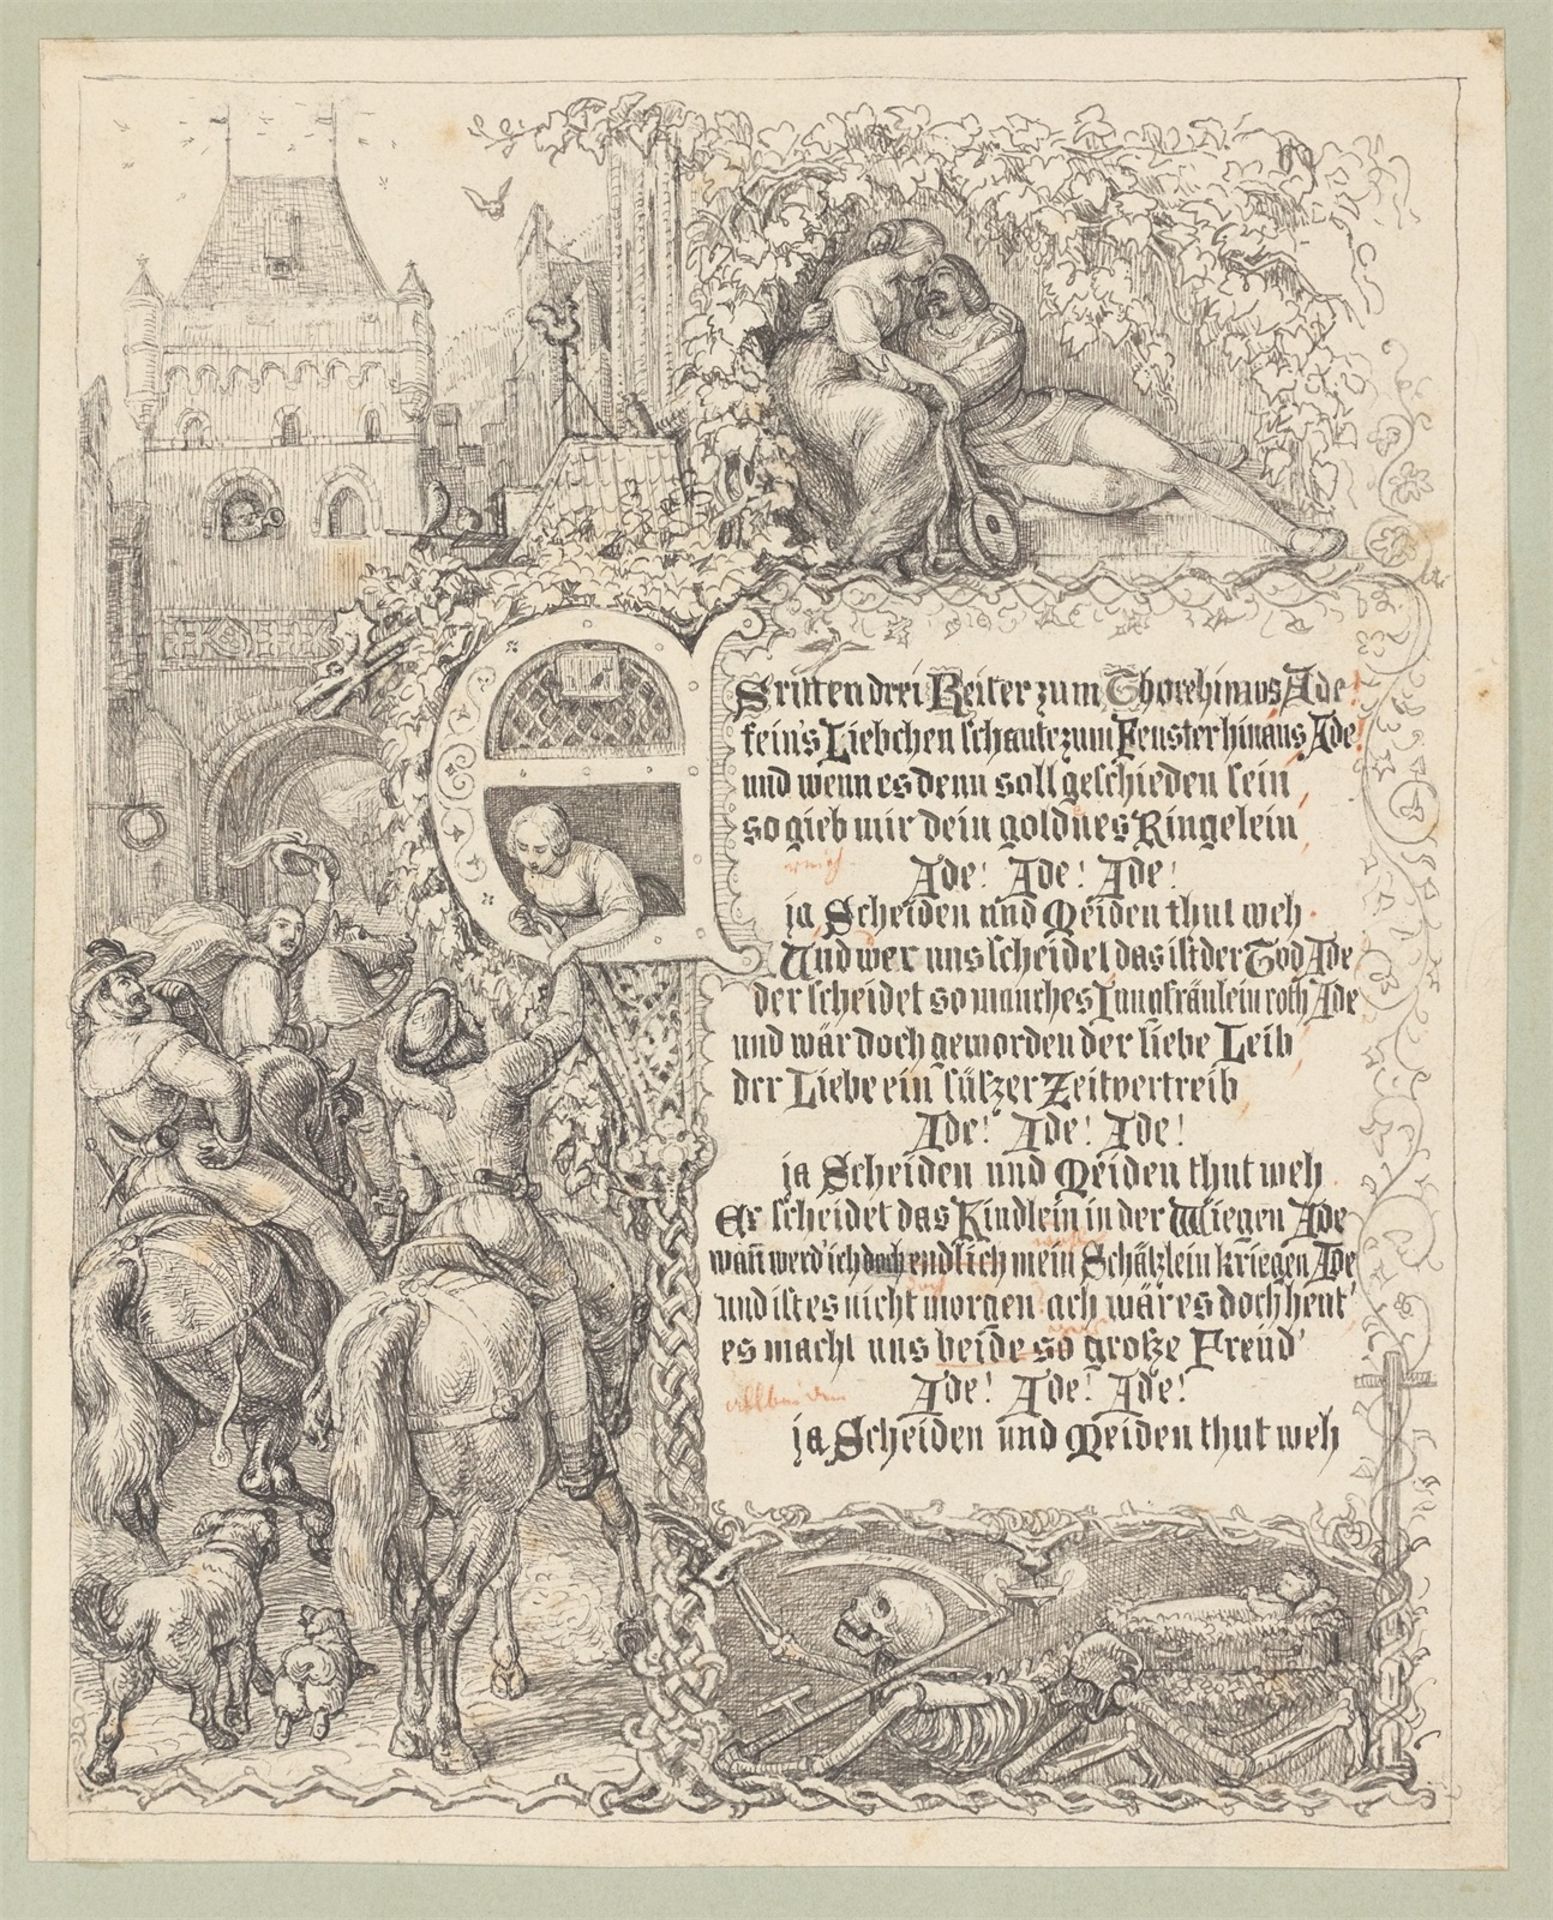 Es ritten drei Reiter zum Thore hinaus Ade!
fein's Liebchen schaute zum Fenster hinaus Ade!
und wenn es denn soll geschieden sein,
so gieb mir dein goldnes Ringelein,
Ade! Ade! Ade!
ja Scheiden und Meiden thut weh.
Und wer uns scheidet das ist der Tod Ade
der scheidet so manches Jungfräulein roth Ade
und wär doch geworden der liebe Leib,
der Liebe ein süszer Zeitvertreib,
Ade! Ade! Ade!
ja Scheiden und Meiden thut weh.
Er scheidet das Kindlein in der Wiegen Ade
wañ werd' ich doch endlich mein Schätzlein kriegen Ade
und ist es nicht morgen ach wär es doch heut'
es macht uns beide so grosze Freud'
allbeiden
Ade! Ade! Ade!
ja Scheiden und Meiden thut weh